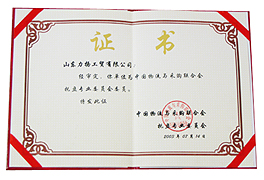 证 书
山东力扬工贸有限公司：
经审定，你单位为中国物流与采购联合会
托盘专业委员会委员。
特发此证
中国物流与采购联合会
托盘专业委员会
2005 年 07 月 14 日